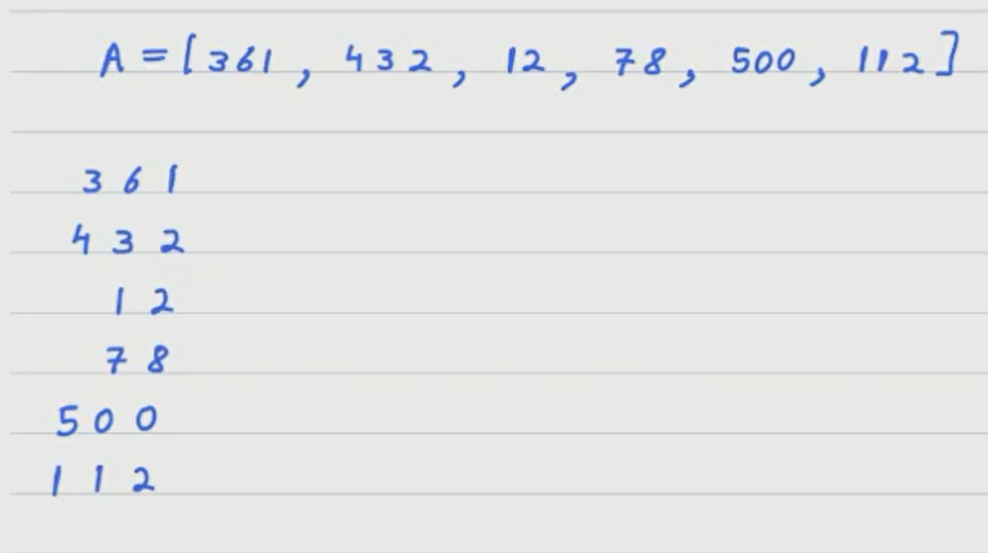 A = [ 361 , 432 , 12 , 78 , 500 , 112 ]
3 6 1
4 3 2
1 2
7 8
5 0 0
1 1 2